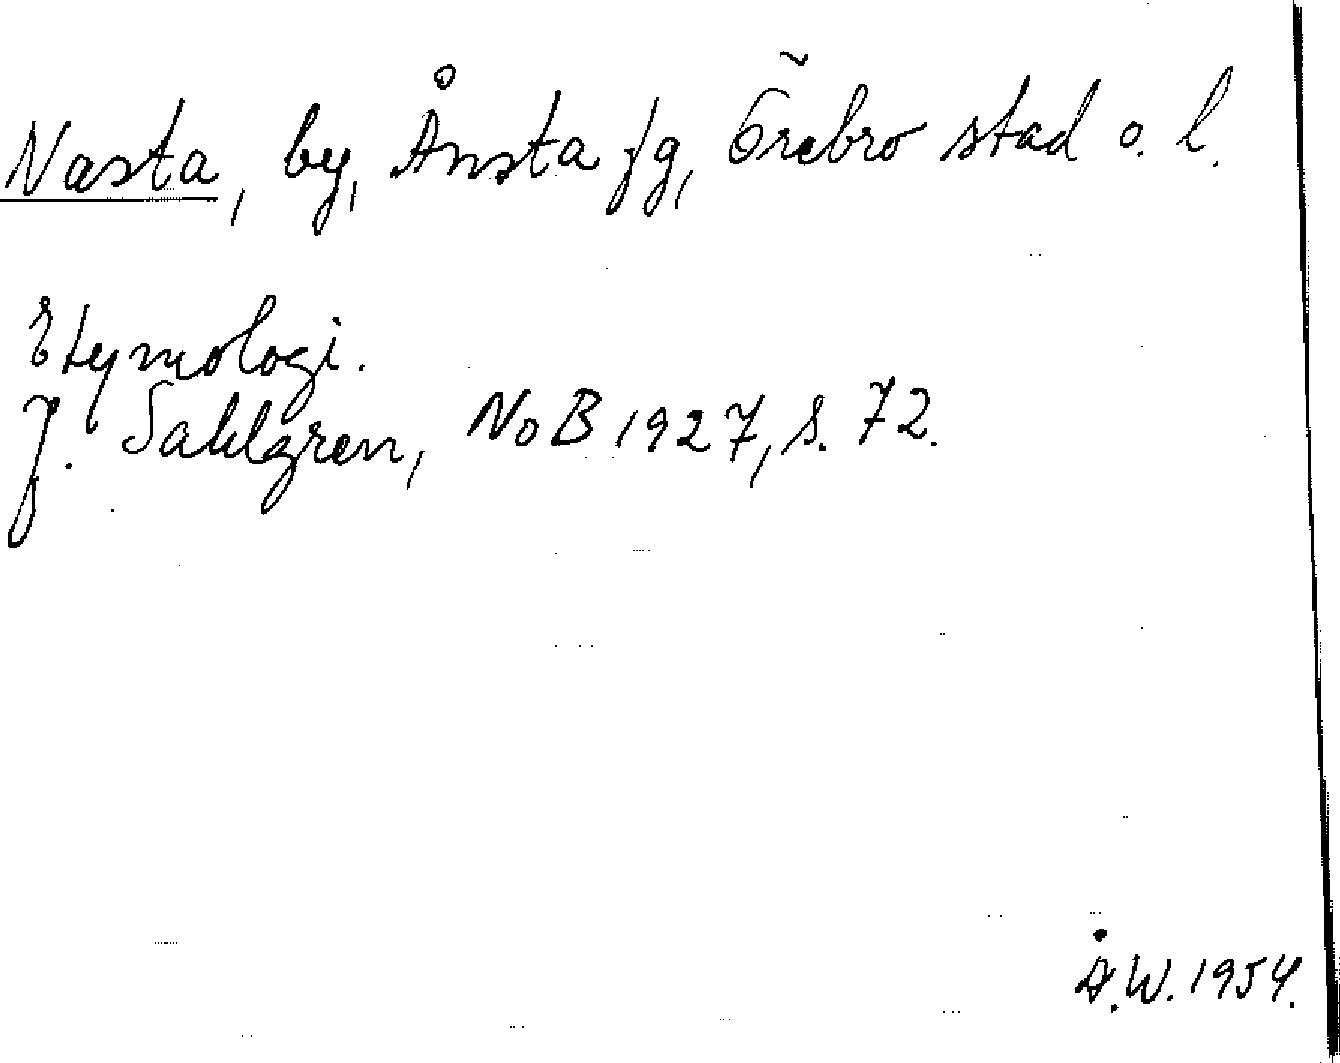 Nasta, by, Ånsta fg, Örebro stad o. l.
Etymologi.
J. Sahlgren, NoB 1927, s. 72.
Å.W. 1954.